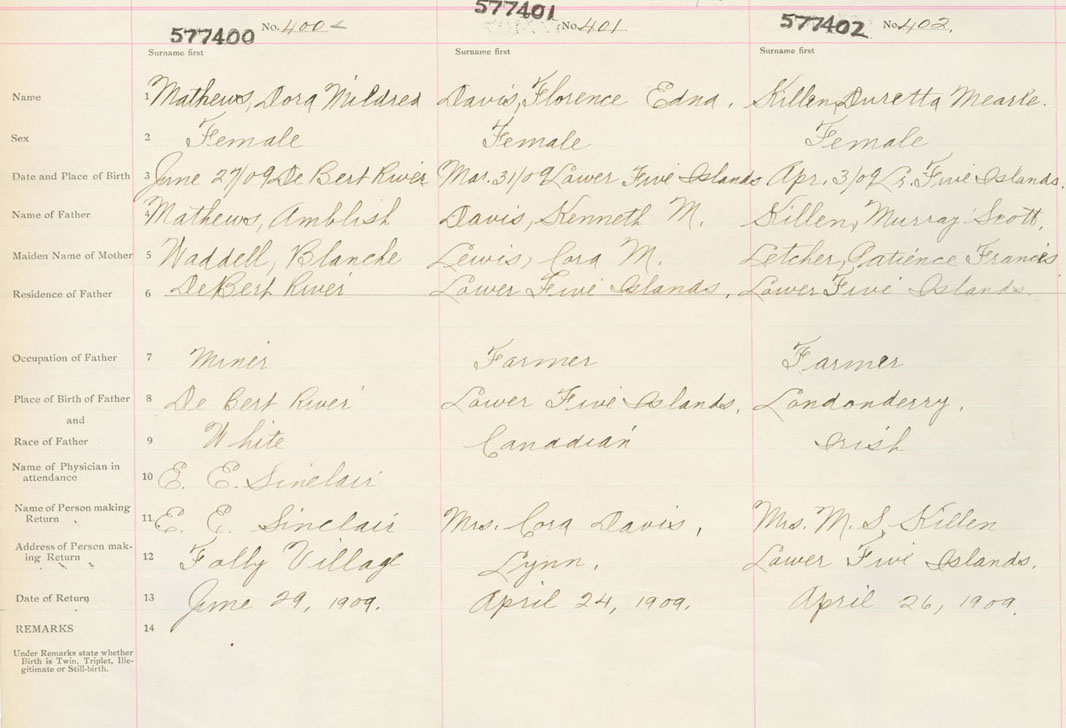 577400 No. 400 577401 No. 401 577402 No. 402.
Surname first Surname first Surname first
Name 1 Mathews, Dora Mildred Davis, Florence Edna. Killen, Duretta Mearle.
Sex 2 Female Female Female
Date and Place of Birth 3 June 27/09 De Bert River Mar. 31/09 Lower Five Islands Apr. 3/09 Lr. Five Islands.
Name of Father 4 Mathews, Amblish Davis, Kenneth M. Killen, Murray Scott.
Maiden Name of Mother 5 Waddell, Blanche Lewis, Cora M. Letcher, Patience Francis
Residence of Father 6 De Bert River Lower Five Islands, Lower Five Islands.
Occupation of Father 7 Miner Farmer Farmer
Place of Birth of Father 8 De Bert River Lower Five Islands, Londonderry,
and
Race of Father 9 White Canadian Irish
Name of Physician in
attendance 10 E. E. Sinclair
Name of Person making
Return 11 E. E. Sinclair Mrs. Cora Davis, Mrs. M. S. Killen
Address of Person mak-
ing Return 12 Folly Village Lynn, Lower Five Islands.
Date of Return 13 June 29, 1909. April 24, 1909. April 26, 1909.
REMARKS 14
Under Remarks state whether
Birth is Twin, Triplet, Ille-
gitimate or Still-birth.